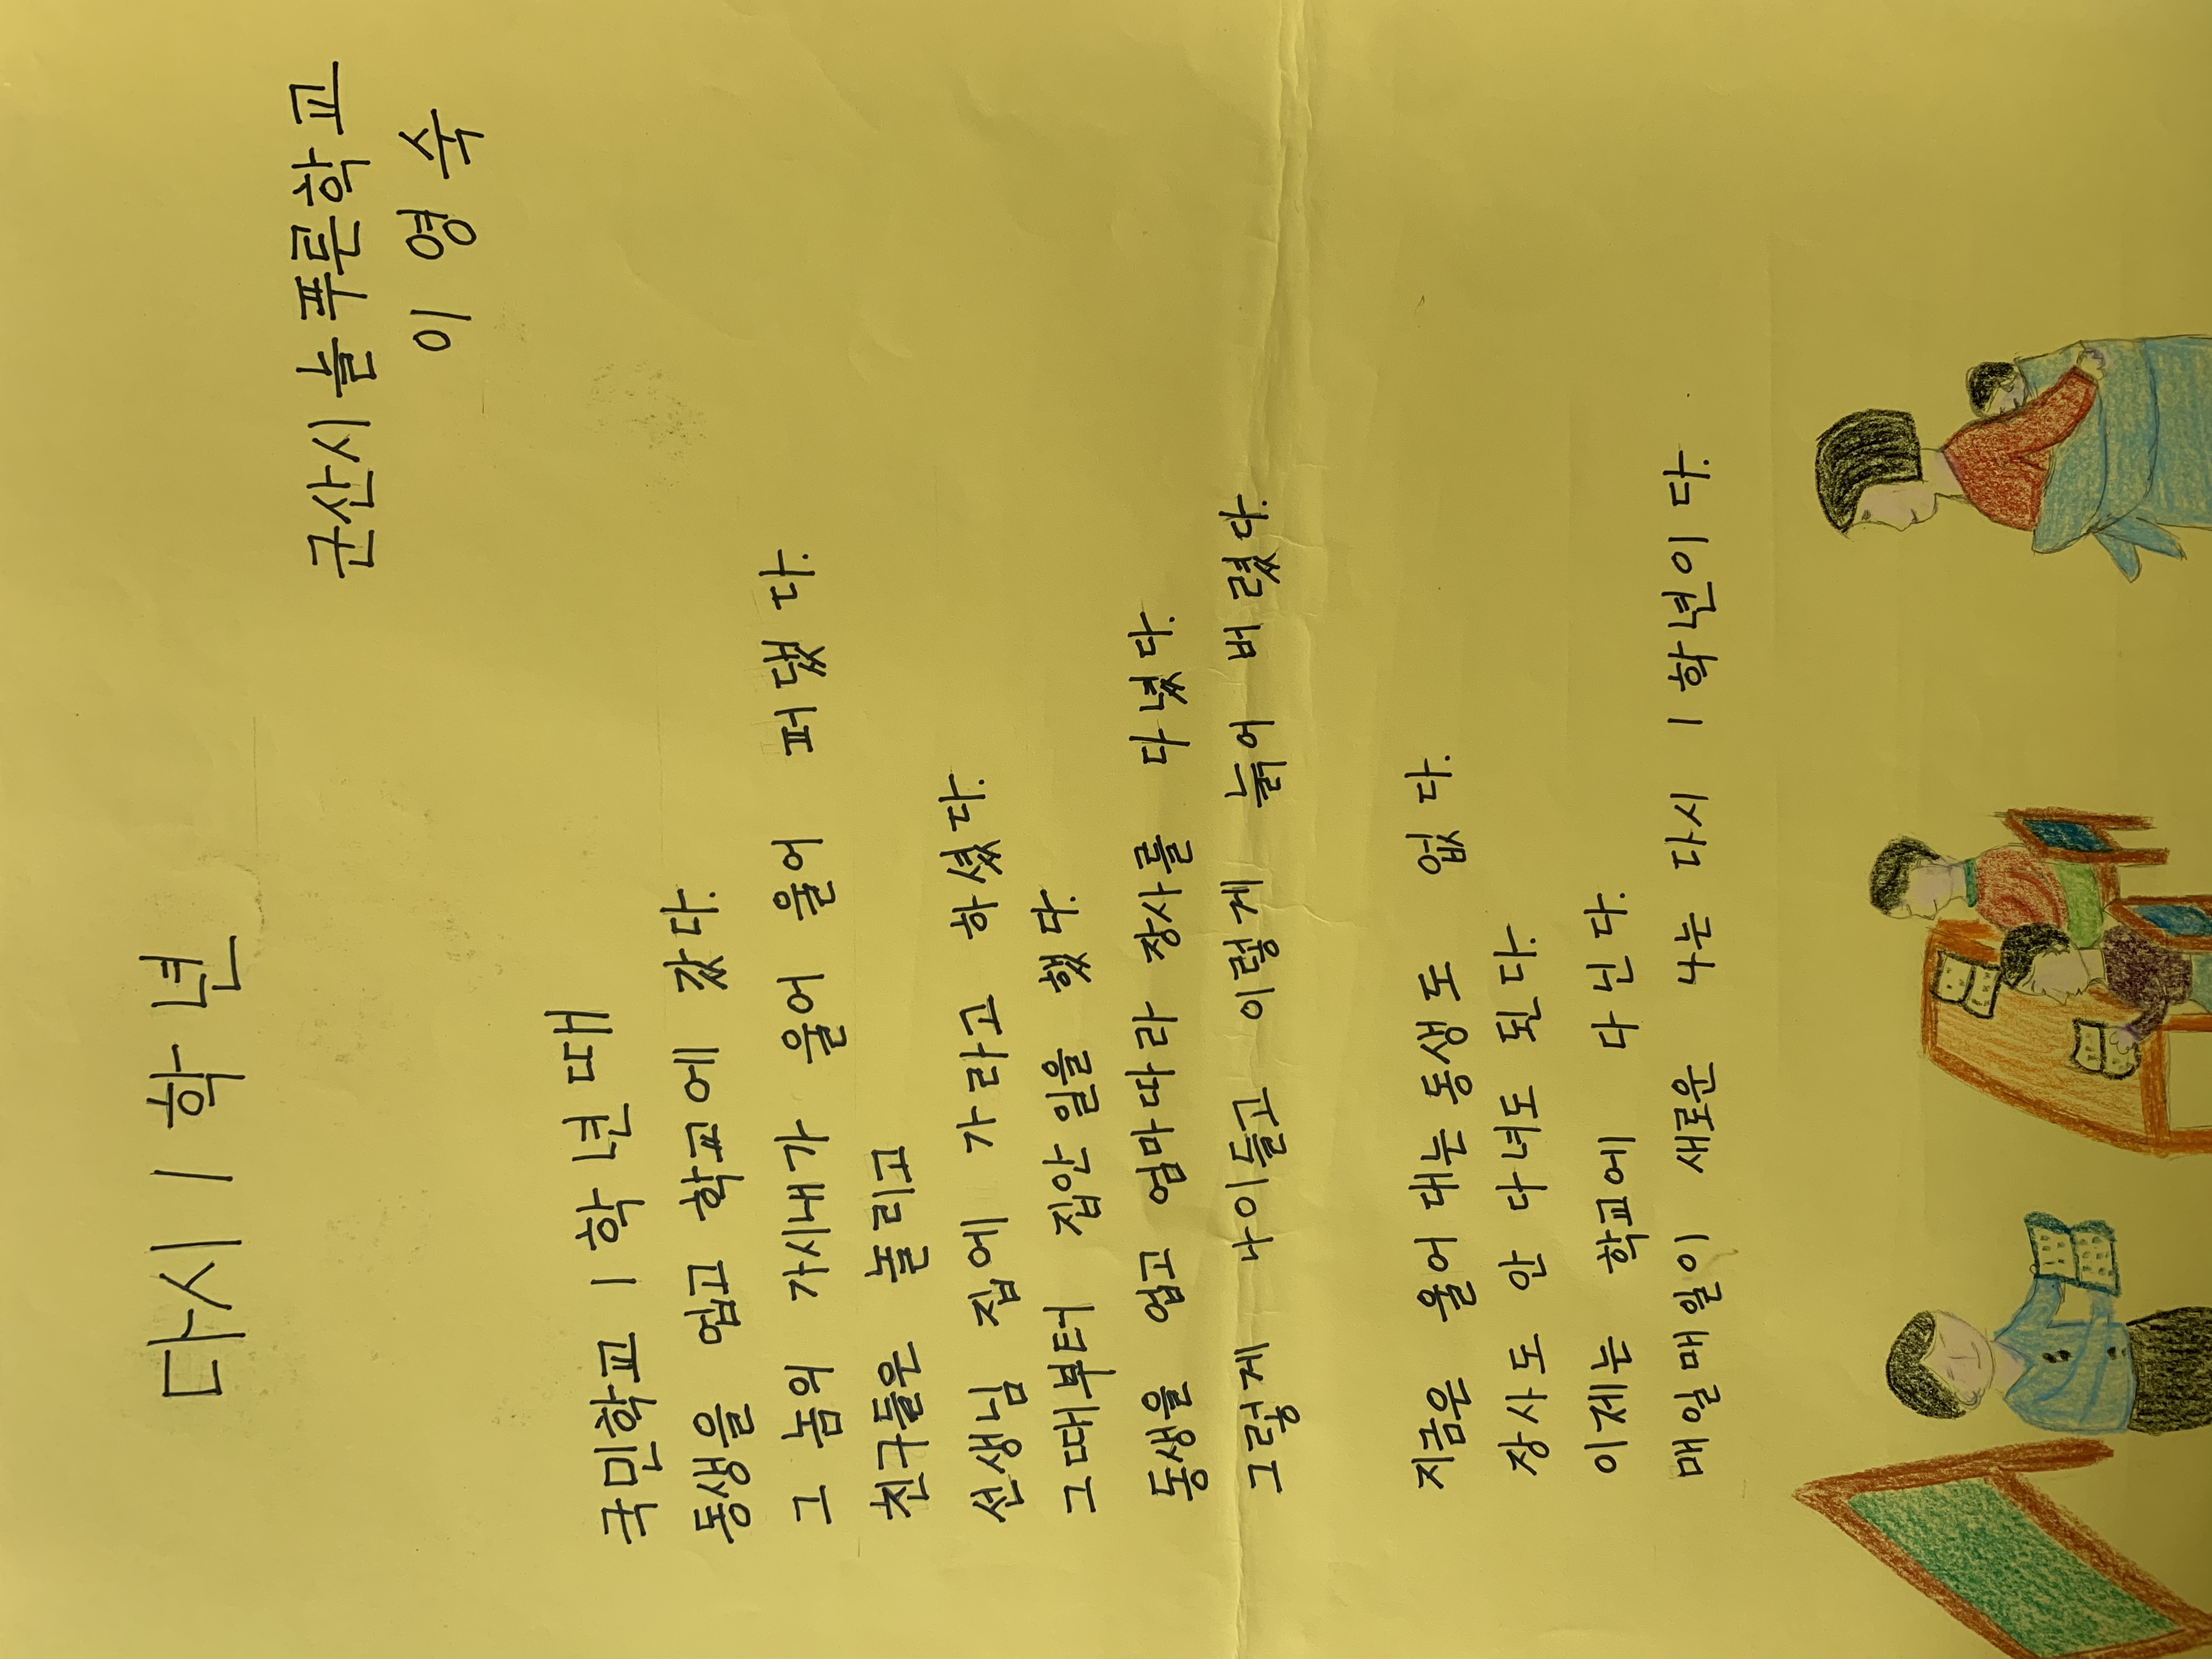 다시 1학년
군산시 늘푸른학교
이영숙
국민학교 1학년때
동생을 업고 학교에 갔다.
그 놈의 가시내가 울어 울어 퍼댔다.
친구들은 놀리고
선생님 집에 가라고 하셨다.
그때부터 집안일을 했다.
동생을 업고 엄마따라 장사를 다녔다.
그렇게 나이들고 이렇게 늙어 버렸다.
지금은 울어 대는 동생도 없다.
장사도 안 다녀도 된다.
이제는 학교에 다닌다.
매일매일이 새로운 나는 다시 1학년이다.